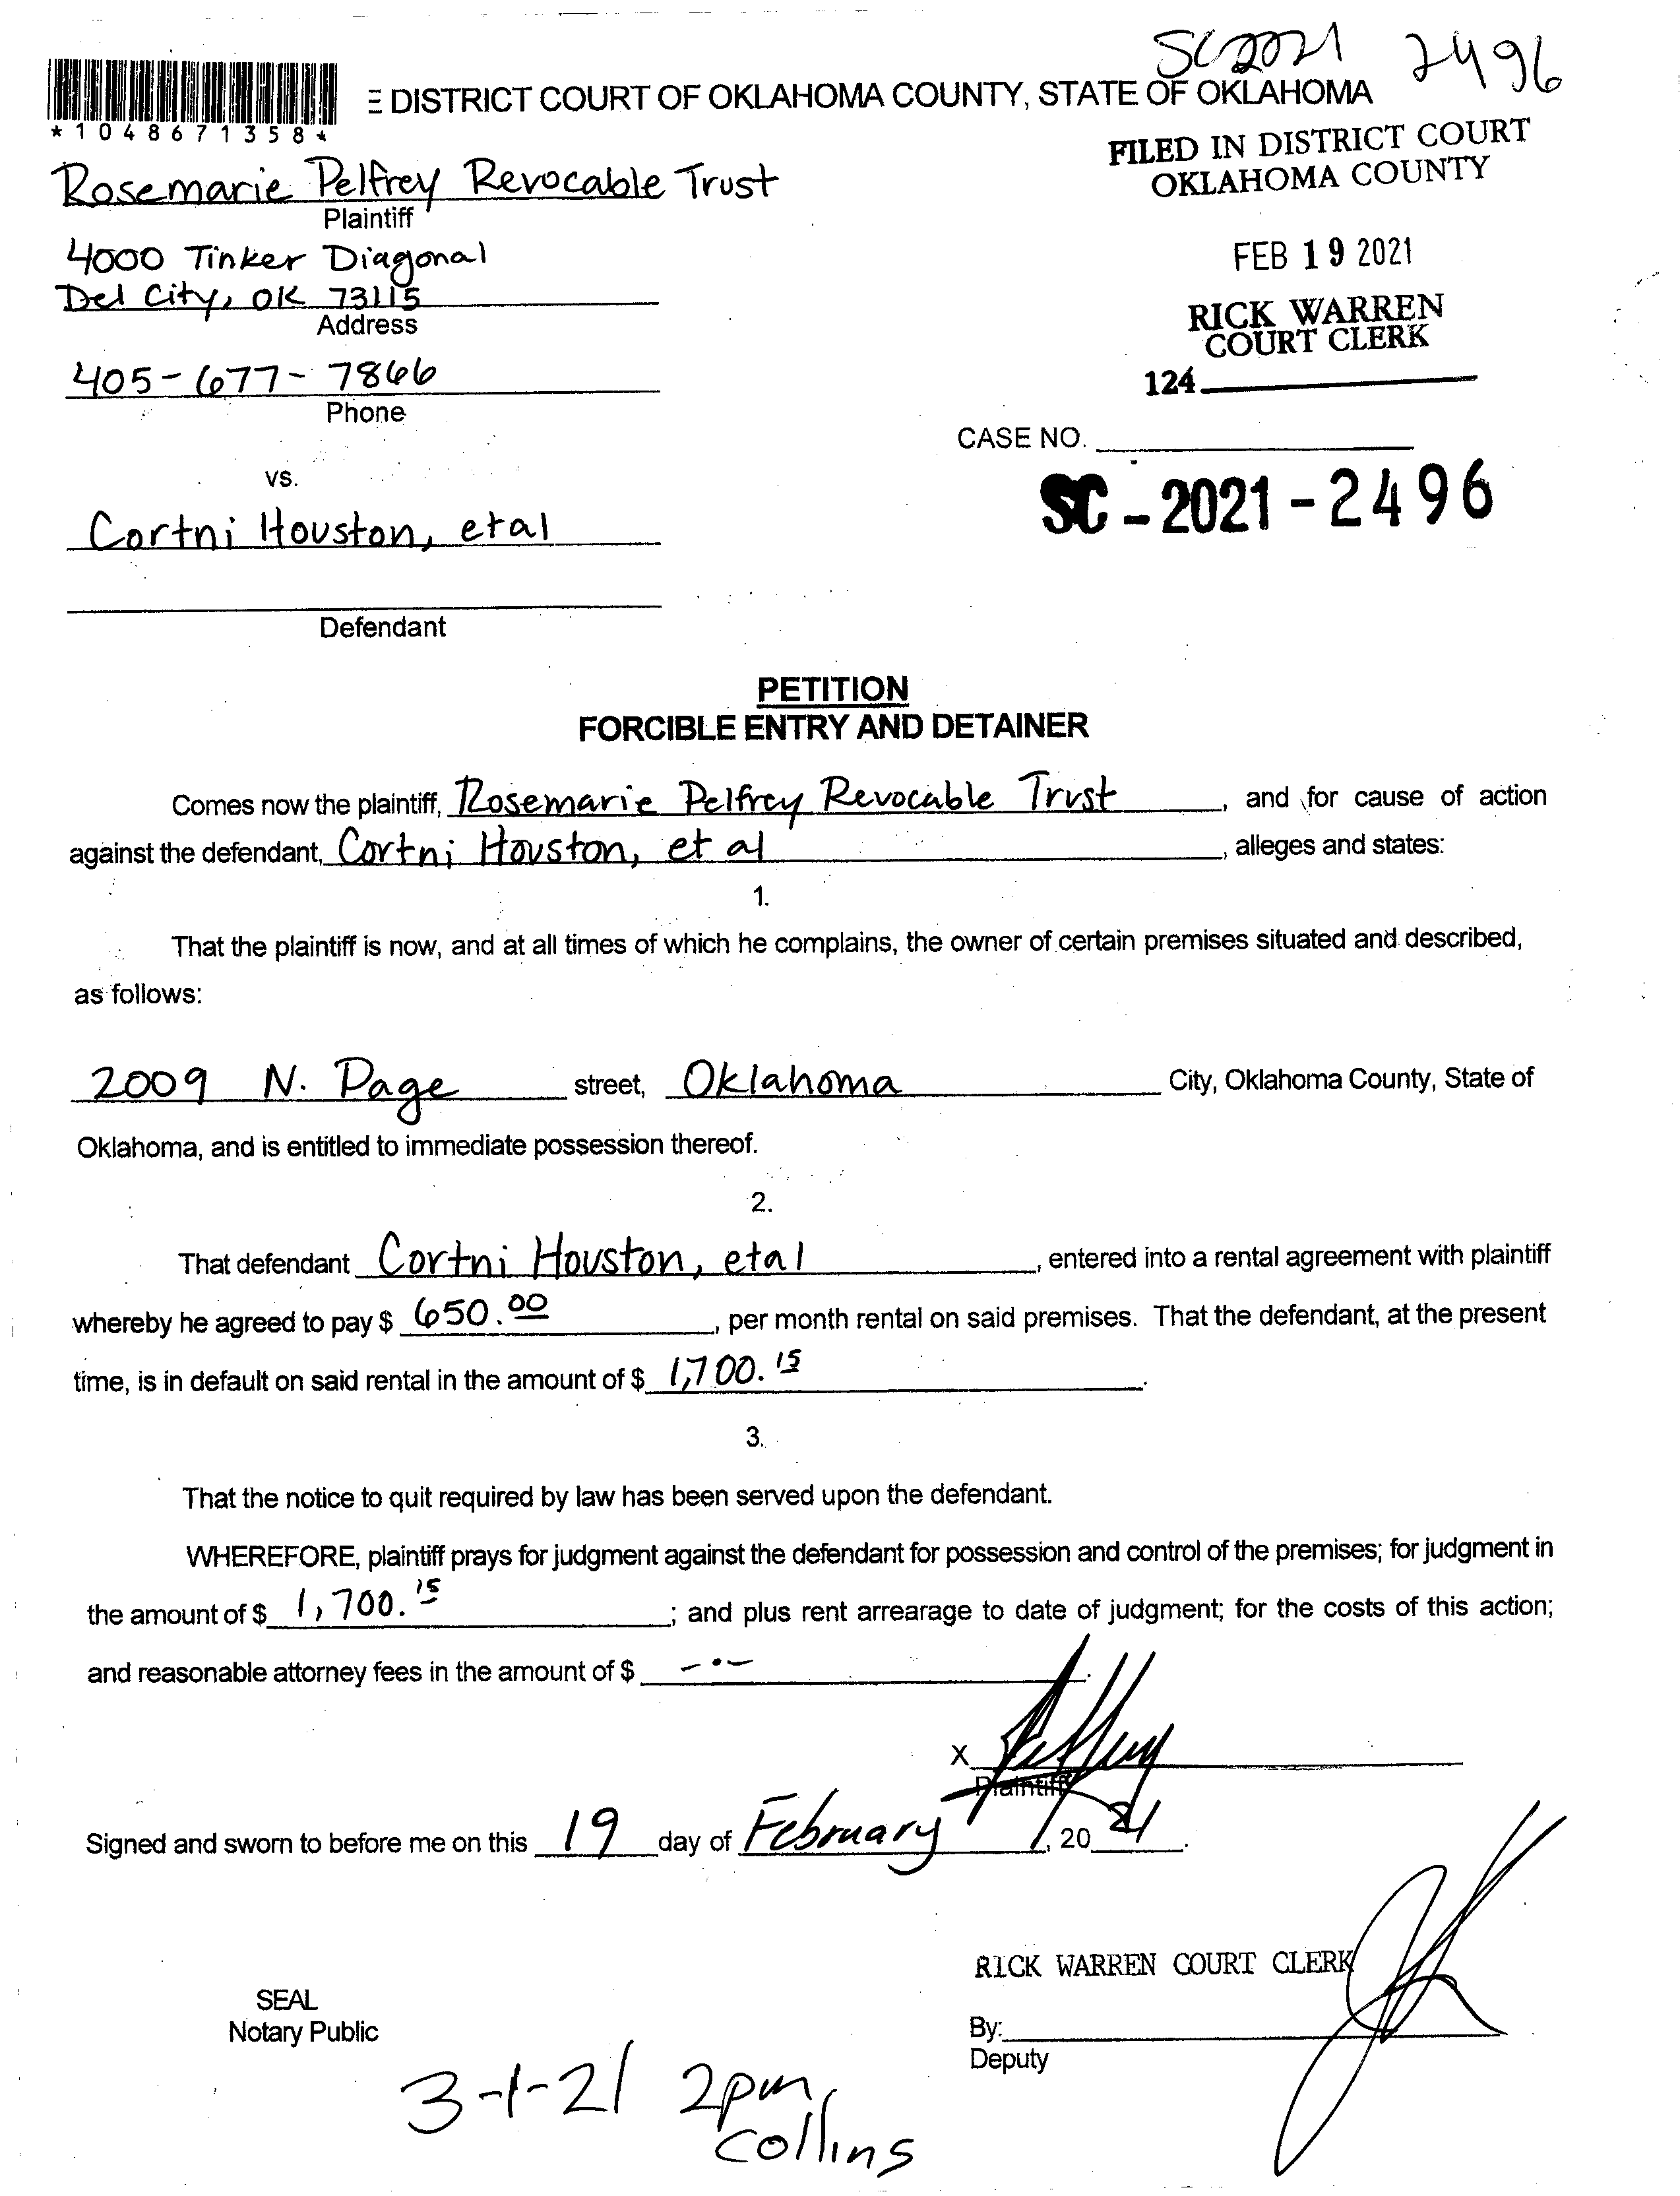 SC2021 2496
E DISTRICT COURT OF OKLAHOMA COUNTY, STATE OF OKLAHOMA
*1048671358*
FILED IN DISTRICT COURT
OKLAHOMA COUNTY
Rosemarie Pelfrey Revocable Trust
Plaintiff
4000 Tinker Diagonal
Del City, OK 73115
Address
FEB 19 2021
RICK WARREN
COURT CLERK
124
405-677-7866
Phone
CASE NO.
SC-2021-2496
vs.
Cortni Houston, etal
Defendant
PETITION
FORCIBLE ENTRY AND DETAINER
Comes now the plaintiff, Rosemarie Pelfrey Revocable Trust, and for cause of action
against the defendant, Cortni Houston, et al, alleges and states:
1.
That the plaintiff is now, and at all times of which he complains, the owner of certain premises situated and described,
as follows:
2009 N. Page street, Oklahoma City, Oklahoma County, State of
Oklahoma, and is entitled to immediate possession thereof.
2.
That defendant Cortni Houston, etal, entered into a rental agreement with plaintiff
whereby he agreed to pay $ 650.00, per month rental on said premises. That the defendant, at the present
time, is in default on said rental in the amount of $ 1,700.15.
3.
That the notice to quit required by law has been served upon the defendant.
WHEREFORE, plaintiff prays for judgment against the defendant for possession and control of the premises; for judgment in
the amount of $ 1,700.15; and plus rent arrearage to date of judgment; for the costs of this action;
and reasonable attorney fees in the amount of $ -•-.
X
Plaintiff
Signed and sworn to before me on this 19 day of February, 20 21.
RICK WARREN COURT CLERK
SEAL
Notary Public
By:
Deputy
3-1-21 2pm
Collins